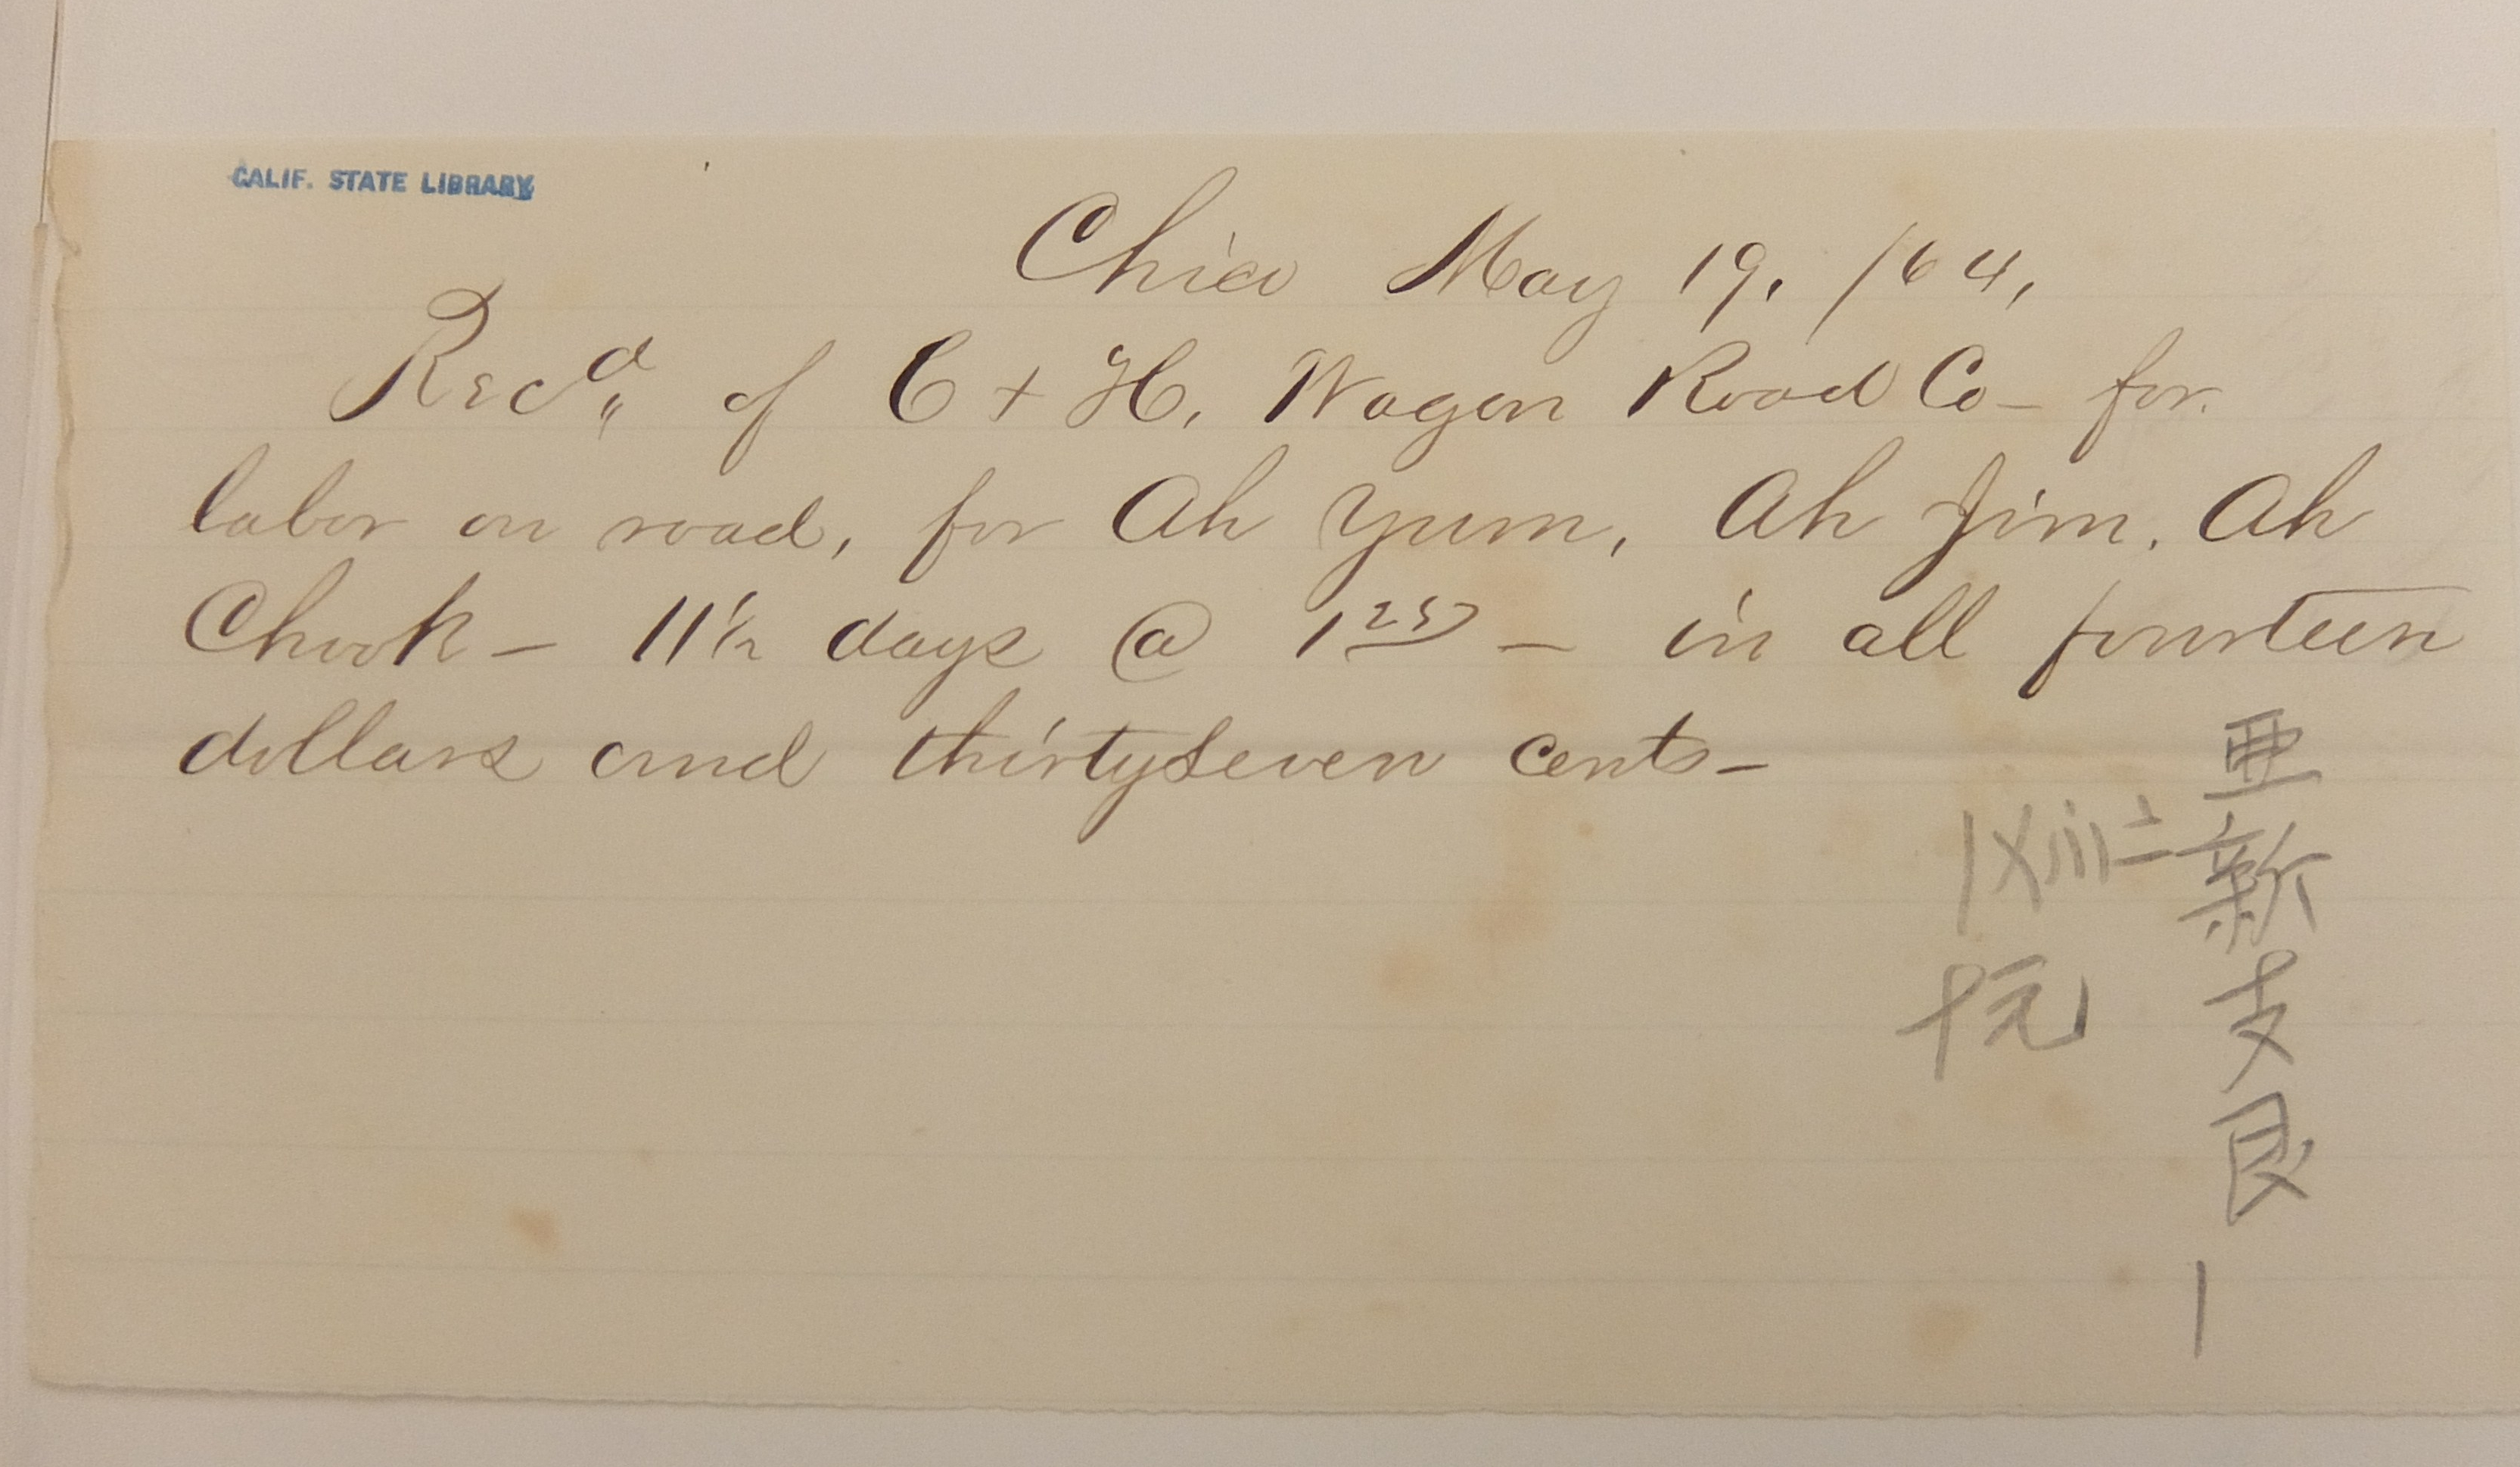 CALIF. STATE LIBRARY
Chico May 19. /64,
Recd,, of C + H. Wagon Road Co– for
labor on road, for Ah Yum, Ah Jim. Ah
Chook – 11½ days @ 1 25 – in all fourteen
dollars and thirtyseven cents–
亜新支艮〡
〡〤〣二
十元